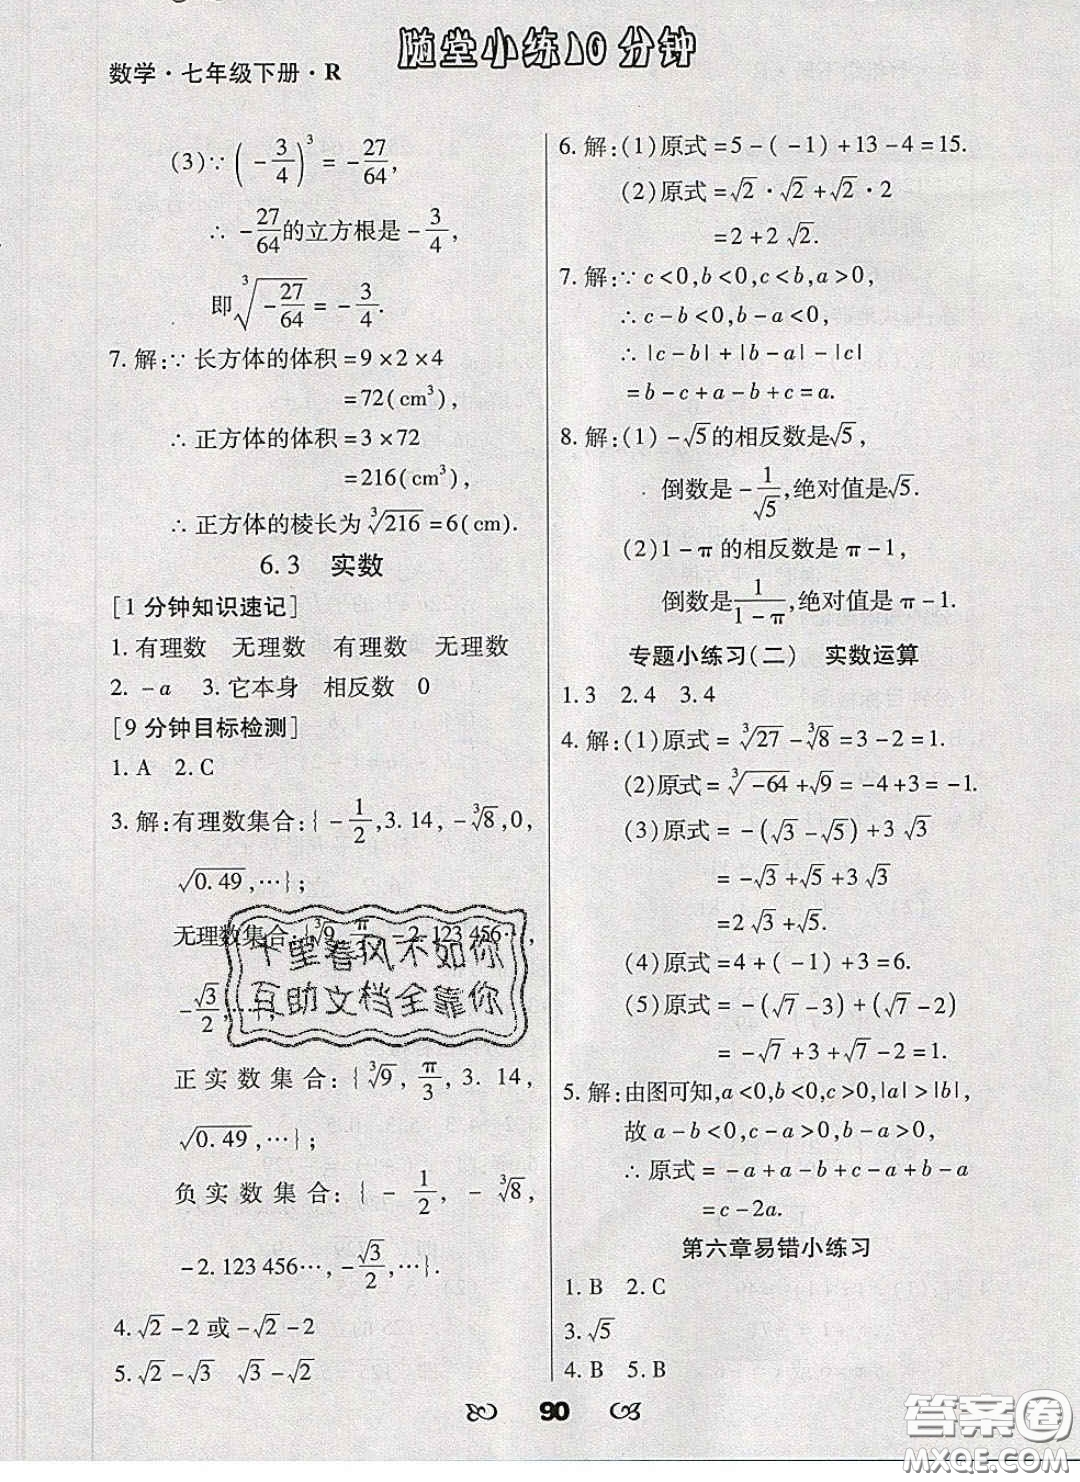 随堂小练10分钟
数学·七年级下册·R
(3)∵(-3/4)³=-27/64,
∴ -27/64的立方根是-3/4,
即∛(-27/64)=-3/4.
7.解:∵长方体的体积=9×2×4
=72(cm³),
∴正方体的体积=3×72
=216(cm³),
∴正方体的棱长为∛216=6(cm).
6.3 实数
[1分钟知识速记]
1.有理数 无理数 有理数 无理数
2.-a 3.它本身 相反数 0
[9分钟目标检测]
1.A 2.C
3.解:有理数集合:{-1/2,3.14,-∛8,0,
√0.49,…};
无理数集合:{∛9,π/3,-2.123 456…,
-√3/2,…};
正实数集合:{∛9,π/3,3.14,
√0.49,…};
负实数集合:{-1/2,-∛8,
-2.123 456…,-√3/2,…}.
4.√2-2或-√2-2
5.√2-√3 √3-√2
6.解:(1)原式=5-(-1)+13-4=15.
(2)原式=√2·√2+√2·2
=2+2√2.
7.解:∵c<0,b<0,c<b,a>0,
∴c-b<0,b-a<0,
∴|c-b|+|b-a|-|c|
=b-c+a-b+c=a.
8.解:(1)-√5的相反数是√5,
倒数是-1/√5,绝对值是√5.
(2)1-π的相反数是π-1,
倒数是1/(1-π),绝对值是π-1.
专题小练习(二) 实数运算
1.3 2.4 3.4
4.解:(1)原式=∛27-∛8=3-2=1.
(2)原式=∛-64+√9=-4+3=-1.
(3)原式=-(√3-√5)+3√3
=-√3+√5+3√3
=2√3+√5.
(4)原式=4+(-1)+3=6.
(5)原式=-(√7-3)+(√7-2)
=-√7+3+√7-2=1.
5.解:由图可知,a<0,b<0,c>0,|a|>|b|,
故a-b<0,c-a>0,b-a>0,
∴原式=-a+a-b+c-a+b-a
=c-2a.
第六章易错小练习
1.B 2.C
3.√5
4.B 5.B
十里春风不如你
互助文档全靠你
90
答案圈
MXQE.COM